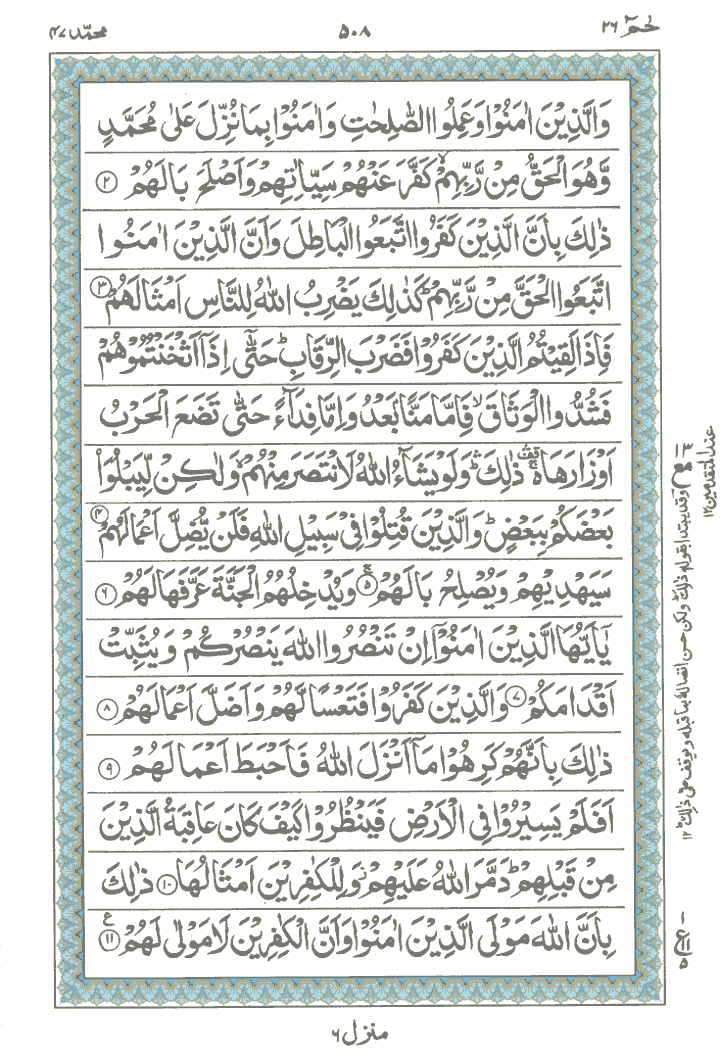 حٰمٓ ٢٦
٥٠٨
محمّد ٤٧
وَالَّذِيْنَ اٰمَنُوْا وَعَمِلُوا الصّٰلِحٰتِ وَاٰمَنُوْا بِمَا نُزِّلَ عَلٰى مُحَمَّدٍ
وَّهُوَ الْحَقُّ مِنْ رَّبِّهِمْ ۙ كَفَّرَ عَنْهُمْ سَيِّاٰتِهِمْ وَاَصْلَحَ بَالَهُمْ ﴿٢﴾
ذٰلِكَ بِاَنَّ الَّذِيْنَ كَفَرُوا اتَّبَعُوا الْبَاطِلَ وَاَنَّ الَّذِيْنَ اٰمَنُوا
اتَّبَعُوا الْحَقَّ مِنْ رَّبِّهِمْ ؕ كَذٰلِكَ يَضْرِبُ اللّٰهُ لِلنَّاسِ اَمْثَالَهُمْ ﴿٣﴾
فَاِذَا لَقِيْتُمُ الَّذِيْنَ كَفَرُوْا فَضَرْبَ الرِّقَابِ ؕ حَتّٰٓى اِذَاۤ اَثْخَنْتُمُوْهُمْ
فَشُدُّوا الْوَثَاقَ ۙ فَاِمَّا مَنًّۢا بَعْدُ وَاِمَّا فِدَآءً حَتّٰى تَضَعَ الْحَرْبُ
اَوْزَارَهَا ۛۚ ذٰلِكَ ۛؕ وَلَوْ يَشَآءُ اللّٰهُ لَانْتَصَرَ مِنْهُمْ ۙ وَلٰكِنْ لِّيَبْلُوَا۟
بَعْضَكُمْ بِبَعْضٍ ؕ وَالَّذِيْنَ قُتِلُوْا فِىْ سَبِيْلِ اللّٰهِ فَلَنْ يُّضِلَّ اَعْمَالَهُمْ ﴿٤﴾
سَيَهْدِيْهِمْ وَيُصْلِحُ بَالَهُمْ ۚ﴿٥﴾ وَيُدْخِلُهُمُ الْجَنَّةَ عَرَّفَهَا لَهُمْ ﴿٦﴾
يٰۤاَيُّهَا الَّذِيْنَ اٰمَنُوْۤا اِنْ تَنْصُرُوا اللّٰهَ يَنْصُرْكُمْ وَيُثَبِّتْ
اَقْدَامَكُمْ ﴿٧﴾ وَالَّذِيْنَ كَفَرُوْا فَتَعْسًا لَّهُمْ وَاَضَلَّ اَعْمَالَهُمْ ﴿٨﴾
ذٰلِكَ بِاَنَّهُمْ كَرِهُوْا مَاۤ اَنْزَلَ اللّٰهُ فَاَحْبَطَ اَعْمَالَهُمْ ﴿٩﴾
اَفَلَمْ يَسِيْرُوْا فِى الْاَرْضِ فَيَنْظُرُوْا كَيْفَ كَانَ عَاقِبَةُ الَّذِيْنَ
مِنْ قَبْلِهِمْ ؕ دَمَّرَ اللّٰهُ عَلَيْهِمْ ؗ وَلِلْكٰفِرِيْنَ اَمْثَالُهَا ﴿١٠﴾ ذٰلِكَ
بِاَنَّ اللّٰهَ مَوْلَى الَّذِيْنَ اٰمَنُوْا وَاَنَّ الْكٰفِرِيْنَ لَا مَوْلٰى لَهُمْ ﴿١١﴾ ع
عند المتقدمين ١٢
وقد يبتدا بقوله ذلك ولكن حسن اتصاله بما قبله ويوقف على ذلك ١٢
منزل ٦